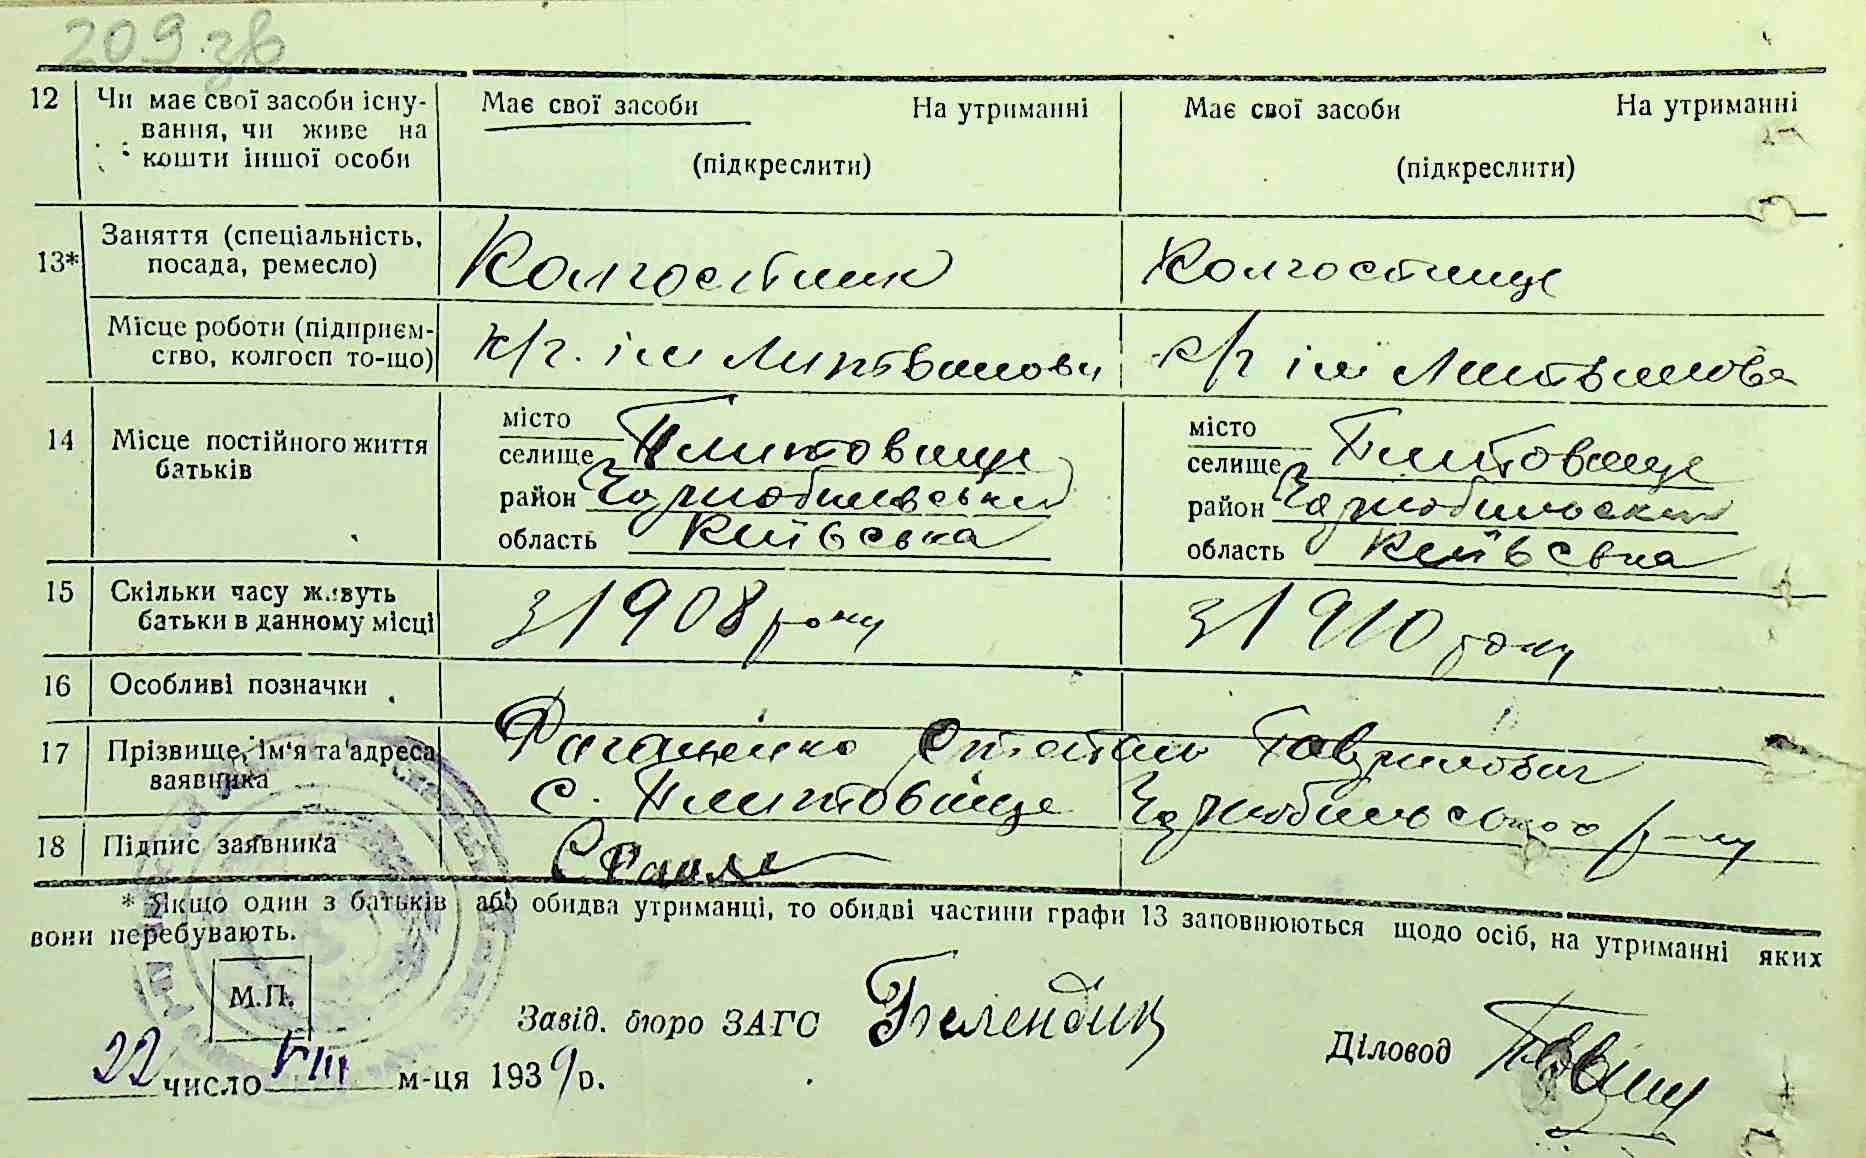 209 зв
12 Чи має свої засоби існу- Має свої засоби На утриманні Має свої засоби На утриманні
вання, чи живе на
кошти іншої особи (підкреслити) (підкреслити)
13* Заняття (спеціальність, Колгоспник Колгоспниця
посада, ремесло)
Місце роботи (підприєм- к/г. ім Литвинова к/г ім Литвинова
ство, колгосп то-що)
14 Місце постійного життя місто місто
батьків селище Плитовище селище Плитовище
район Чорнобильський район Чорнобильський
область Київська область Київська
15 Скільки часу живуть з 1908 року з 1910 року
батьки в данному місці
16 Особливі позначки
17 Прізвище, ім'я та адреса Степан Гаврилович
заявника с. Плитовище Чорнобильського р-ну
18 Підпис заявника
* Якщо один з батьків або обидва утриманці, то обидві частини графи 13 заповнюються щодо осіб, на утриманні яких
вони перебувають.
М.П.
Завід. бюро ЗАГС
Діловод
22 число VIII м-ця 1939 р.